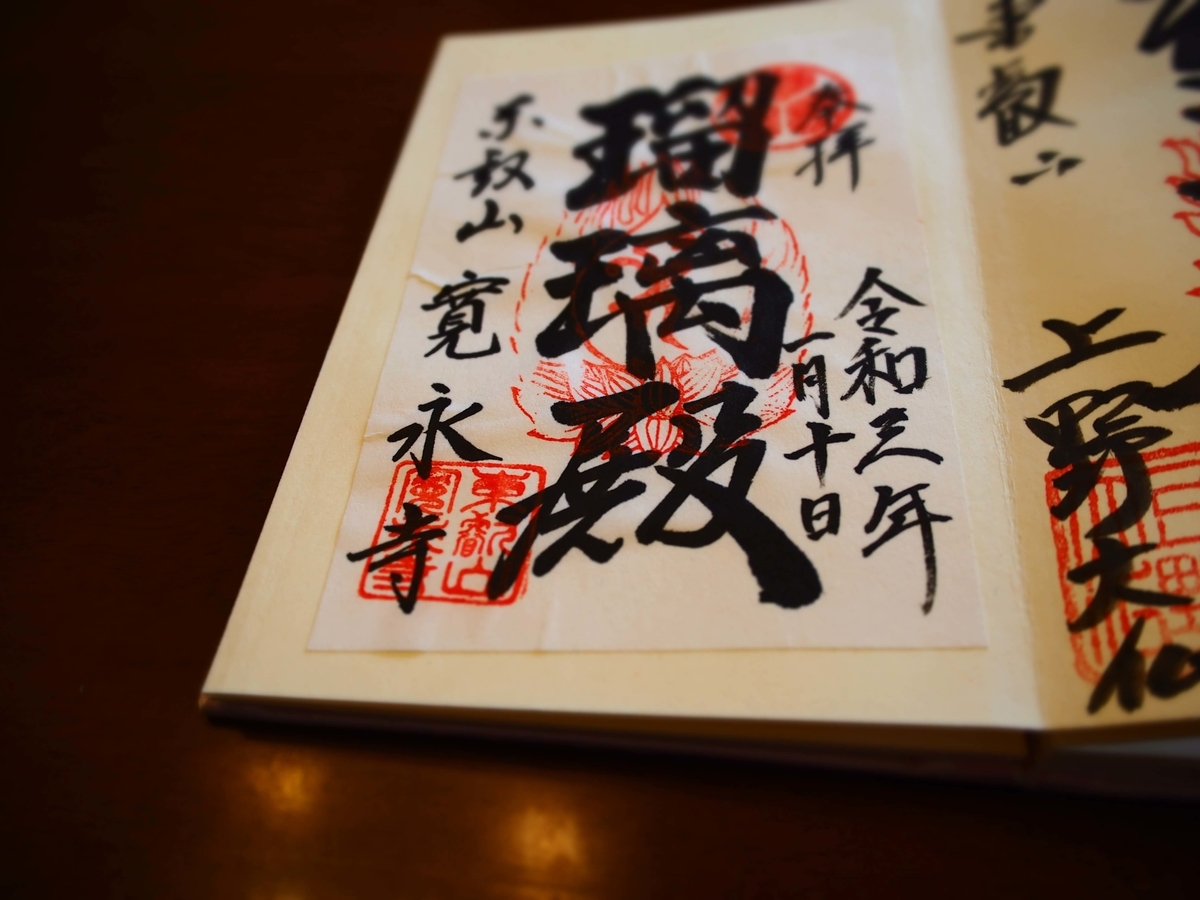 東叡山 上野大仏
奉拝
令和三年
一月十日
瑠璃殿
東叡山 寛永寺
東叡山
寛永寺